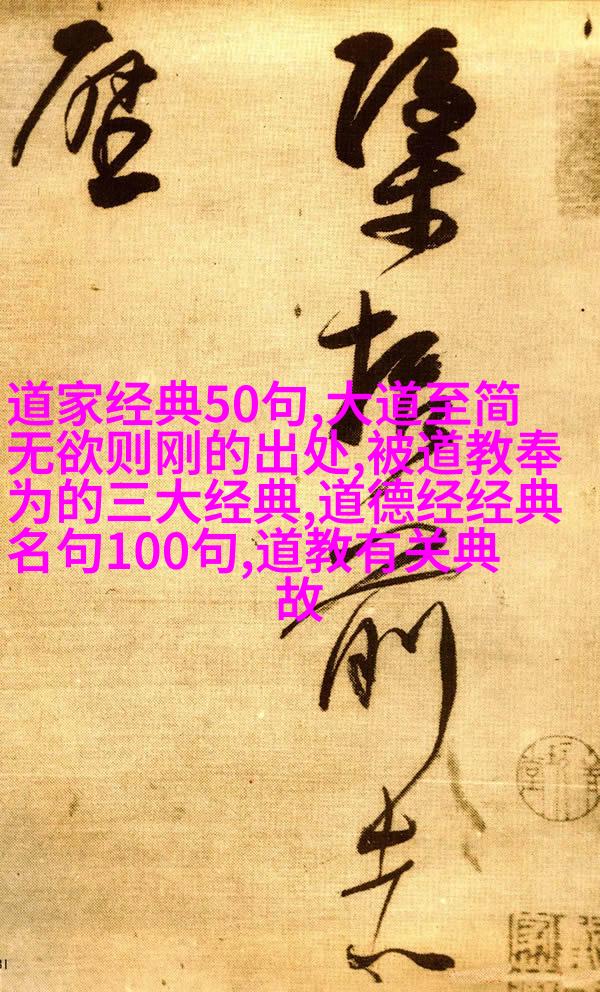 道家经典50句,大道至简
无欲则刚的出处,被道教奉
为的三大经典,道德经经典
名句100句,道教有关典
故
前志